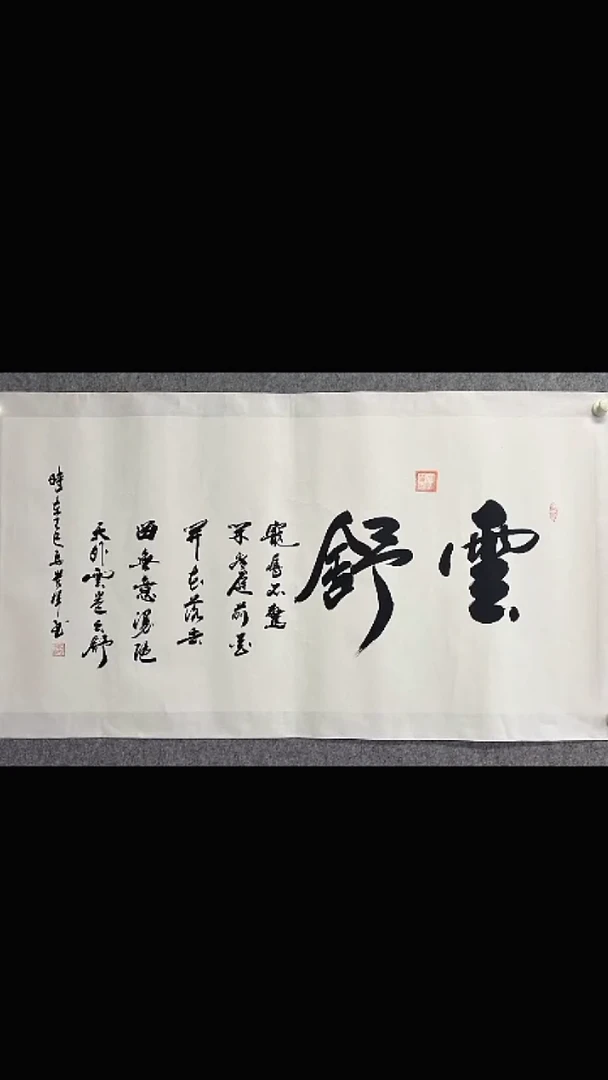 雲
舒
寵辱不驚
閑看庭前花
開花落去
留無意漫隨
天外雲卷云舒
時在乙巳 書